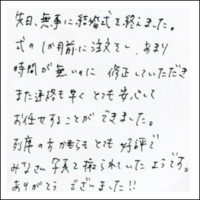 先日、無事に結婚式を終えました。
式の1か月前に注文をし、あまり
時間が無いのに 修正していただき
また連絡も早く とても安心して
お任せすることができました。
列席の方からも とても好評で
みなさん写真を撮られていたようです。
ありがとう ございました!!